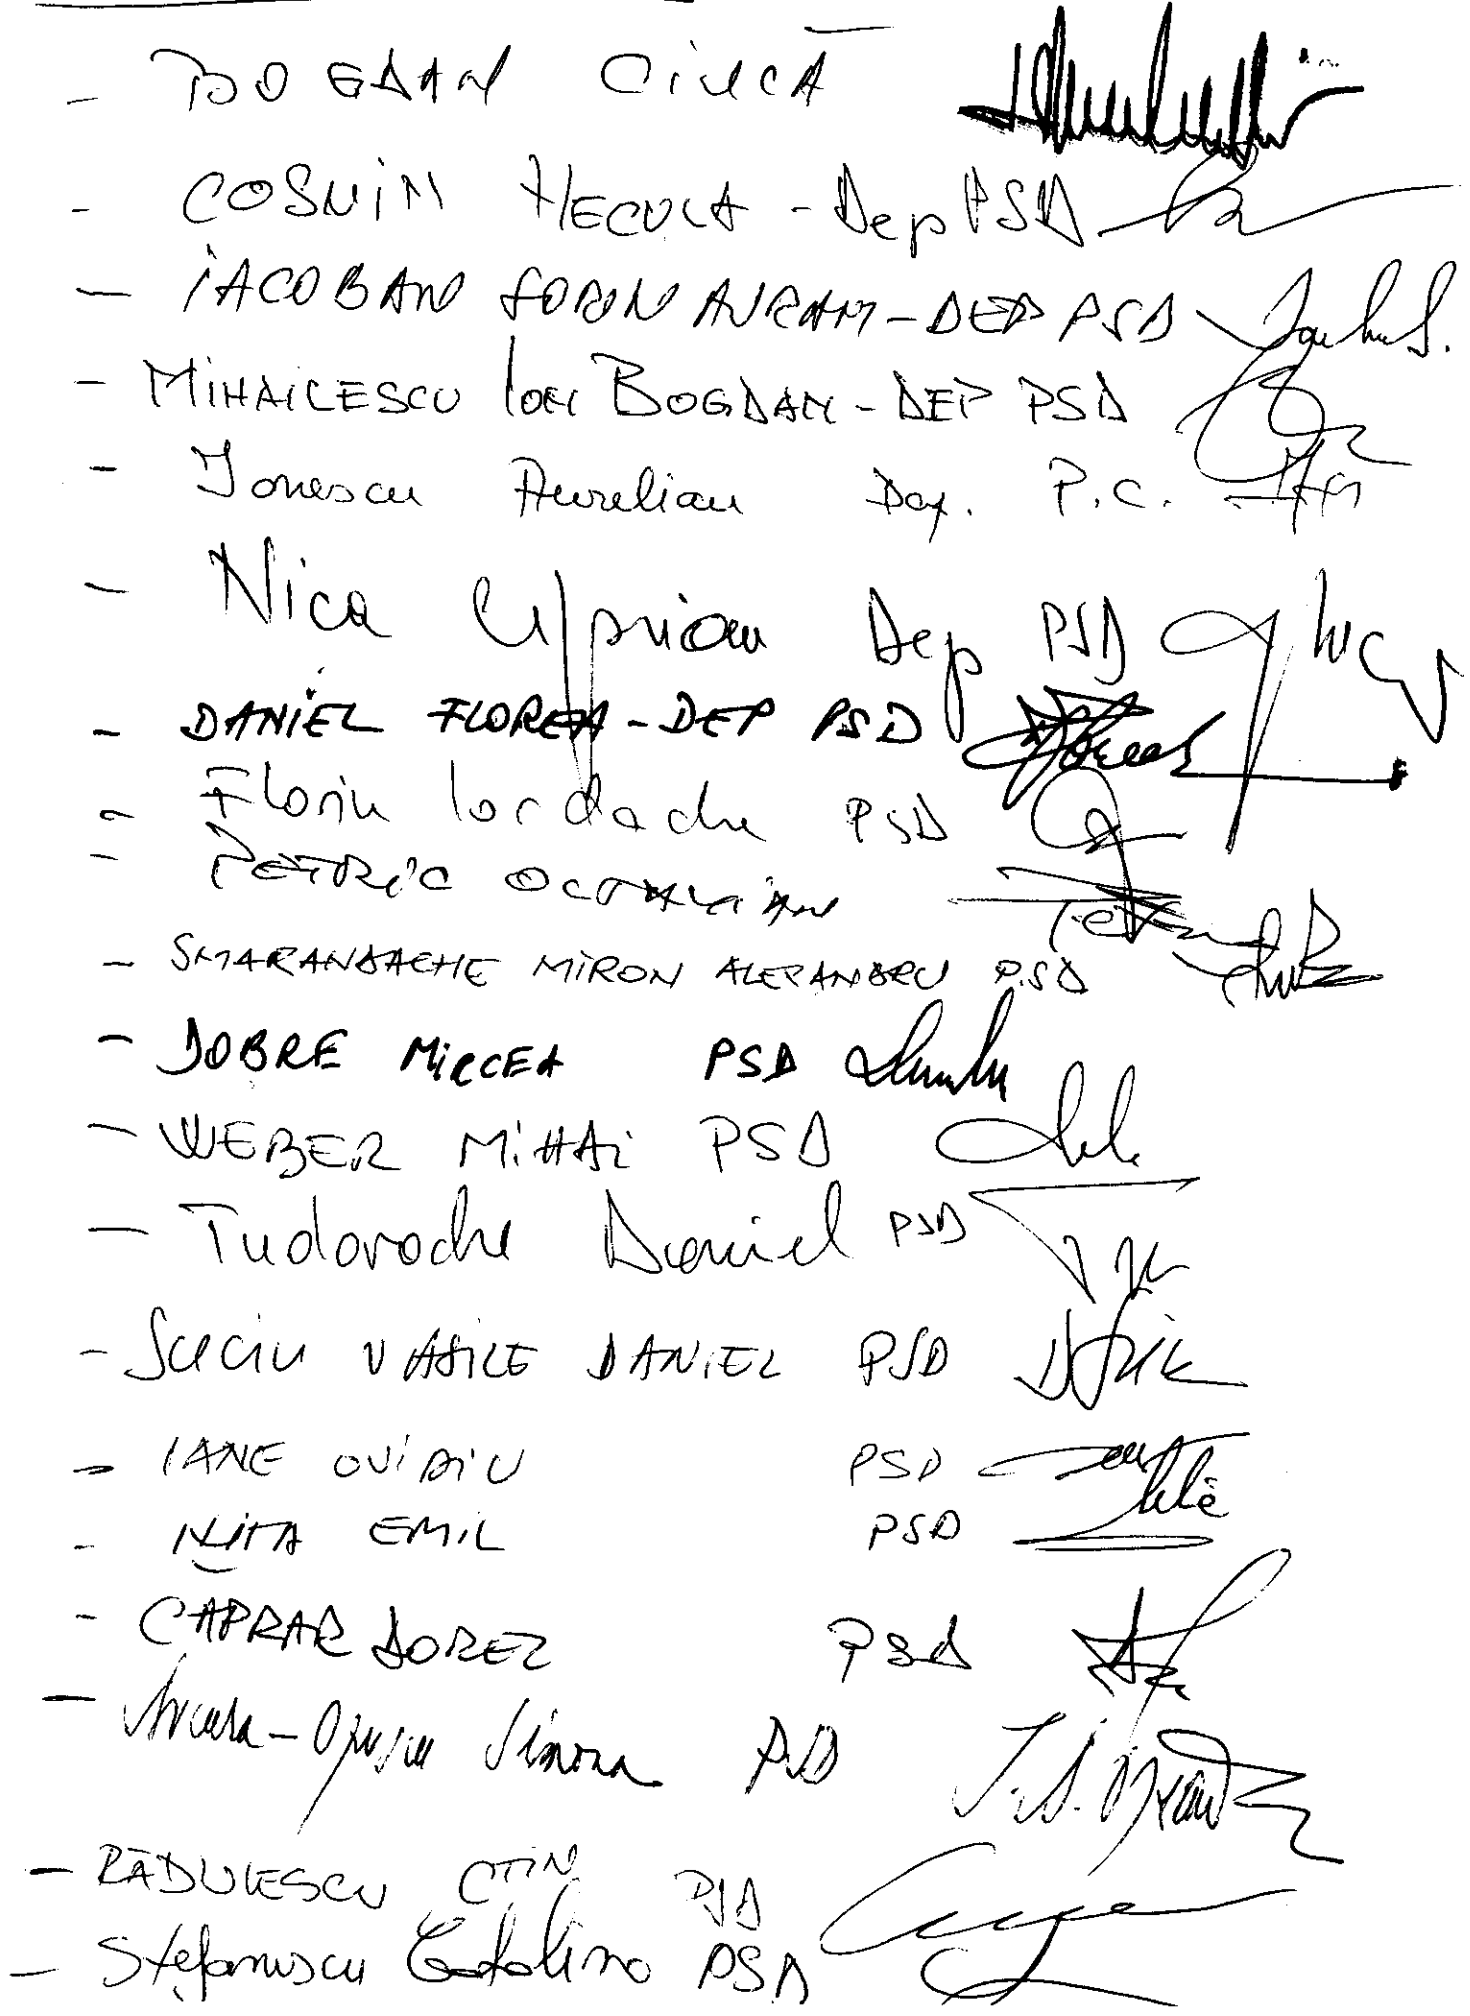 - BOGDAN CIUCĂ
- COSMIN NECULA - Dep PSD
- IACOBAN SORIN AVRAM - DEP PSD
- MIHAILESCU Ion BOGDAN - DEP PSD
- Ionescu Aurelian Dep. P.C.
- Nica Ciprian Dep PSD
- DANIEL FLOREA - DEP PSD
- Florin Iordache PSD
- PETRIC OCTAVIAN
- SMARANDACHE MIRON ALEXANDRU P.SD
- DOBRE MIRCEA PSD
- WEBER MIHAI PSD
- Tudorache Daniel PSD
- Suciu VASILE DANIEL PSD
- IANE OVIDIU PSD
- NIȚA EMIL PSD
- CAPRAR DOREL PSD
- Bucura-Oprescu Simona PSD
- RĂDULESCU CTIN PSD
- Ștefănescu Catalina PSD